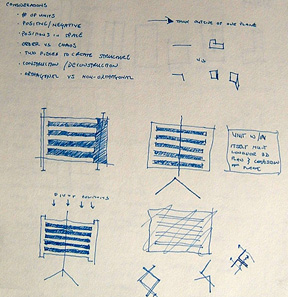 CONSIDERATIONS
• # OF UNITS
• POSITIVE/NEGATIVE
• POSITIONS IN SPACE
• ORDER VS CHAOS
• TWO PIECES TO CREATE STRUCTURE
• CONSTRUCTION/DECONSTRUCTION
• ORTHOGONAL VS NON-ORTHOGONAL
OUTLINE OF ONE PLANE
UNIT W/IN
ITSELF MUST
PLANE
PIVOT POSITIONS